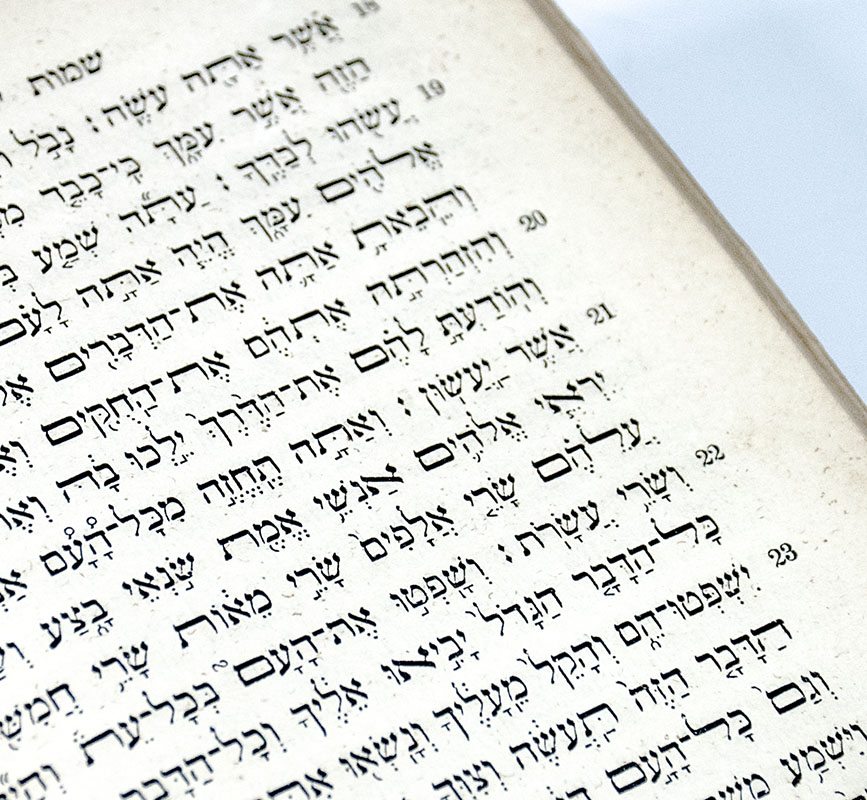 שמות
18 אֲשֶׁר אַתָּה עֹשֶׂה׃ נָבֹל
הַזֶּה אֲשֶׁר עִמָּךְ כִּי־כָבֵד
19 עֲשֹׂהוּ לְבַדֶּךָ׃ עַתָּה שְׁמַע
אֱלֹהִים עִמָּךְ הֱיֵה אַתָּה לָעָם
וְהֵבֵאתָ אַתָּה אֶת־הַדְּבָרִים
20 וְהִזְהַרְתָּה אֶתְהֶם אֶת־הַחֻקִּים
וְהוֹדַעְתָּ לָהֶם אֶת־הַדֶּרֶךְ יֵלְכוּ בָהּ
21 אֲשֶׁר יַעֲשׂוּן׃ וְאַתָּה תֶחֱזֶה מִכָּל־הָעָם
יִרְאֵי אֱלֹהִים אַנְשֵׁי אֱמֶת שֹׂנְאֵי בָצַע
עֲלֵהֶם שָׂרֵי אֲלָפִים שָׂרֵי מֵאוֹת שָׂרֵי
22 וְשָׂרֵי עֲשָׂרֹת׃ וְשָׁפְטוּ אֶת־הָעָם בְּכָל־עֵת
כָּל־הַדָּבָר הַגָּדֹל יָבִיאוּ אֵלֶיךָ וְכָל־הַדָּבָר
23 יִשְׁפְּטוּ־הֵם וְהָקֵל מֵעָלֶיךָ וְנָשְׂאוּ
הַדָּבָר הַזֶּה תַּעֲשֶׂה וְצִוְּךָ
וְגַם כָּל־הָעָם
וַיִּשְׁמַע